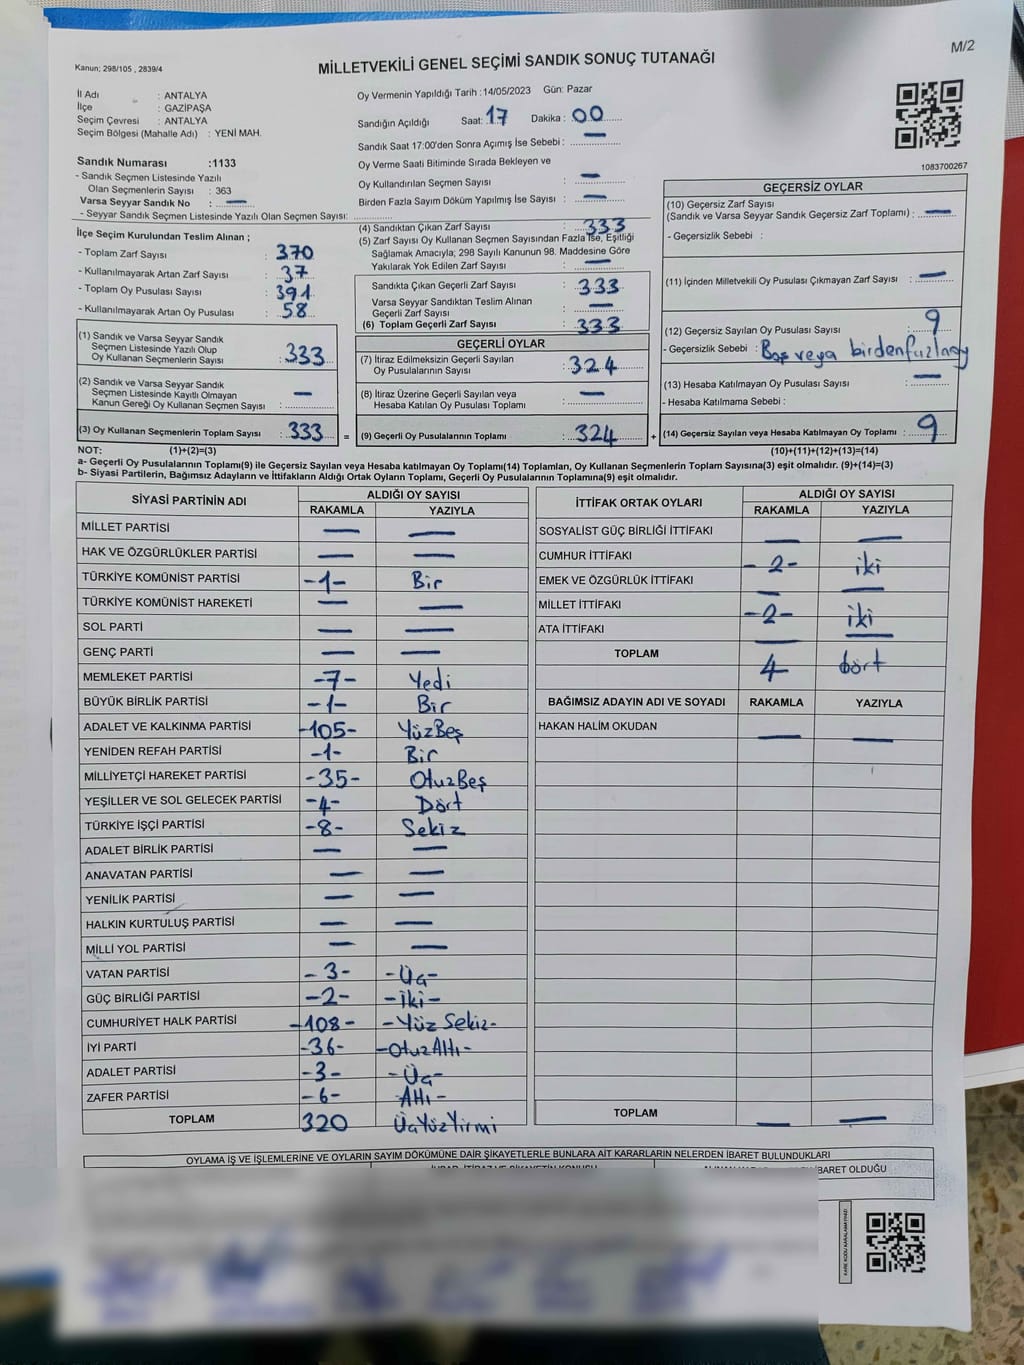 M/2
Kanun; 298/105 , 2839/4
MİLLETVEKİLİ GENEL SEÇİMİ SANDIK SONUÇ TUTANAĞI
İl Adı : ANTALYA
İlçe : GAZİPAŞA
Seçim Çevresi : ANTALYA
Seçim Bölgesi (Mahalle Adı) : YENİ MAH.
Sandık Numarası :1133
- Sandık Seçmen Listesinde Yazılı
Olan Seçmenlerin Sayısı : 363
Varsa Seyyar Sandık No : —
- Seyyar Sandık Seçmen Listesinde Yazılı Olan Seçmen Sayısı:
Oy Vermenin Yapıldığı Tarih :14/05/2023 Gün: Pazar
Sandığın Açıldığı Saat: 17 Dakika : 00
Sandık Saat 17:00'den Sonra Açımış İse Sebebi : —
Oy Verme Saati Bitiminde Sırada Bekleyen ve
Oy Kullandırılan Seçmen Sayısı : —
Birden Fazla Sayım Döküm Yapılmış İse Sayısı : —
1083700267
İlçe Seçim Kurulundan Teslim Alınan ;
- Toplam Zarf Sayısı : 370
- Kullanılmayarak Artan Zarf Sayısı : 37
- Toplam Oy Pusulası Sayısı : 391
- Kullanılmayarak Artan Oy Pusulası : 58
(1) Sandık ve Varsa Seyyar Sandık
Seçmen Listesinde Yazılı Olup
Oy Kullanan Seçmenlerin Sayısı : 333
(2) Sandık ve Varsa Seyyar Sandık
Seçmen Listesinde Kayıtlı Olmayan
Kanun Gereği Oy Kullanan Seçmen Sayısı : —
(3) Oy Kullanan Seçmenlerin Toplam Sayısı : 333 =
(4) Sandıktan Çıkan Zarf Sayısı : 333
(5) Zarf Sayısı Oy Kullanan Seçmen Sayısından Fazla İse, Eşitliği
Sağlamak Amacıyla; 298 Sayılı Kanunun 98. Maddesine Göre
Yakılarak Yok Edilen Zarf Sayısı : —
Sandıkta Çıkan Geçerli Zarf Sayısı : 333
Varsa Seyyar Sandıktan Teslim Alınan
Geçerli Zarf Sayısı : —
(6) Toplam Geçerli Zarf Sayısı : 333
GEÇERLİ OYLAR
(7) İtiraz Edilmeksizin Geçerli Sayılan
Oy Pusulalarının Sayısı : 324
(8) İtiraz Üzerine Geçerli Sayılan veya
Hesaba Katılan Oy Pusulası Toplamı : —
(9) Geçerli Oy Pusulalarının Toplamı : 324 +
GEÇERSİZ OYLAR
(10) Geçersiz Zarf Sayısı
(Sandık ve Varsa Seyyar Sandık Geçersiz Zarf Toplamı) : —
- Geçersizlik Sebebi :
(11) İçinden Milletvekili Oy Pusulası Çıkmayan Zarf Sayısı : —
(12) Geçersiz Sayılan Oy Pusulası Sayısı : 9
- Geçersizlik Sebebi : Boş veya birdenfazlaoy
(13) Hesaba Katılmayan Oy Pusulası Sayısı : —
- Hesaba Katılmama Sebebi :
(14) Geçersiz Sayılan veya Hesaba Katılmayan Oy Toplamı : 9
NOT: (1)+(2)=(3) (10)+(11)+(12)+(13)=(14)
a- Geçerli Oy Pusulalarının Toplamı(9) ile Geçersiz Sayılan veya Hesaba katılmayan Oy Toplamı(14) Toplamları, Oy Kullanan Seçmenlerin Toplam Sayısına(3) eşit olmalıdır. (9)+(14)=(3)
b- Siyasi Partilerin, Bağımsız Adayların ve İttifakların Aldığı Ortak Oyların Toplamı, Geçerli Oy Pusulalarının Toplamına(9) eşit olmalıdır.
SİYASİ PARTİNİN ADI ALDIĞI OY SAYISI
RAKAMLA YAZIYLA
MİLLET PARTİSİ — —
HAK VE ÖZGÜRLÜKLER PARTİSİ — —
TÜRKİYE KOMÜNİST PARTİSİ -1- Bir
TÜRKİYE KOMÜNİST HAREKETİ — —
SOL PARTİ — —
GENÇ PARTİ — —
MEMLEKET PARTİSİ -7- Yedi
BÜYÜK BİRLİK PARTİSİ -1- Bir
ADALET VE KALKINMA PARTİSİ -105- YüzBeş
YENİDEN REFAH PARTİSİ -1- Bir
MİLLİYETÇİ HAREKET PARTİSİ -35- OtuzBeş
YEŞİLLER VE SOL GELECEK PARTİSİ -4- Dört
TÜRKİYE İŞÇİ PARTİSİ -8- Sekiz
ADALET BİRLİK PARTİSİ — —
ANAVATAN PARTİSİ — —
YENİLİK PARTİSİ — —
HALKIN KURTULUŞ PARTİSİ — —
MİLLİ YOL PARTİSİ — —
VATAN PARTİSİ -3- -Üç-
GÜÇ BİRLİĞİ PARTİSİ -2- -İki-
CUMHURİYET HALK PARTİSİ -108- -Yüz Sekiz-
İYİ PARTİ -36- -OtuzAltı-
ADALET PARTİSİ -3- -Üç-
ZAFER PARTİSİ -6- -Altı-
TOPLAM 320 ÜçYüzYirmi
İTTİFAK ORTAK OYLARI ALDIĞI OY SAYISI
RAKAMLA YAZIYLA
SOSYALİST GÜÇ BİRLİĞİ İTTİFAKI — —
CUMHUR İTTİFAKI -2- iki
EMEK VE ÖZGÜRLÜK İTTİFAKI — —
MİLLET İTTİFAKI -2- iki
ATA İTTİFAKI — —
TOPLAM 4 dört
BAĞIMSIZ ADAYIN ADI VE SOYADI RAKAMLA YAZIYLA
HAKAN HALİM OKUDAN — —
TOPLAM — —
OYLAMA İŞ VE İŞLEMLERİNE VE OYLARIN SAYIM DÖKÜMÜNE DAİR ŞİKAYETLERLE BUNLARA AİT KARARLARIN NELERDEN İBARET BULUNDUKLARI
İBARET OLDUĞU